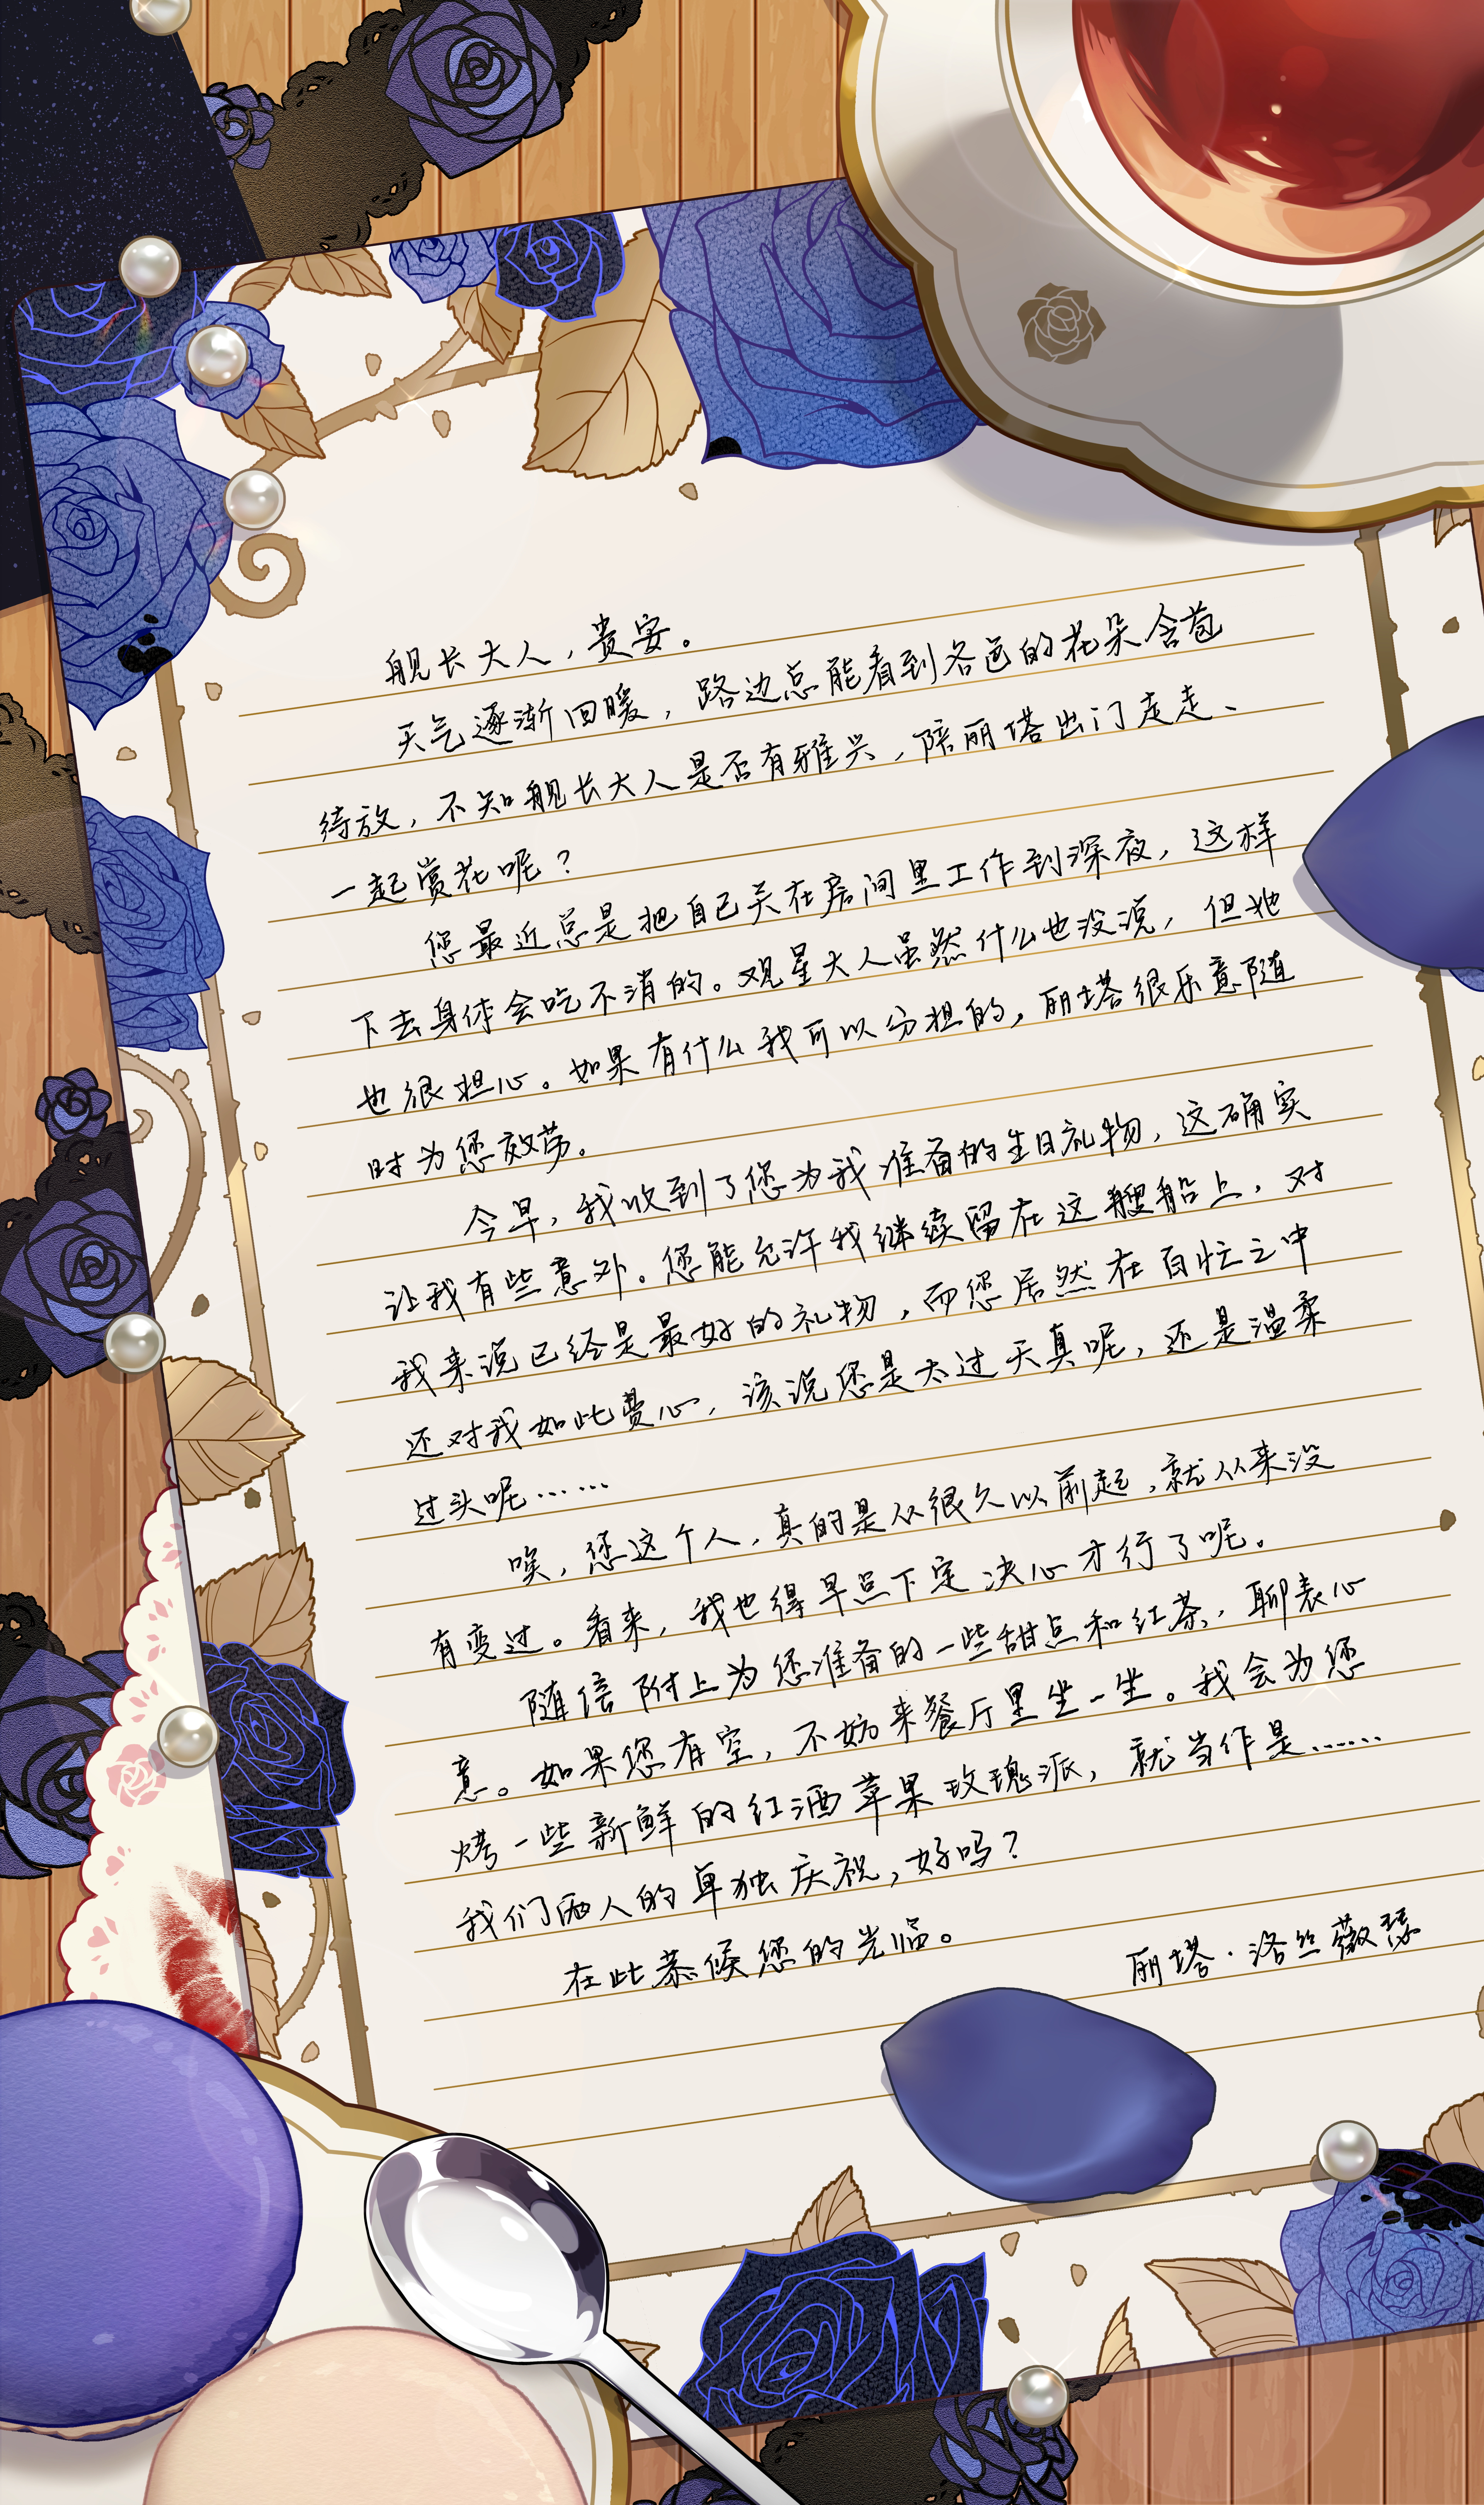 舰长大人，贵安。
天气逐渐回暖，路边总能看到各色的花朵含苞
待放，不知舰长大人是否有雅兴，陪丽塔出门走走、
一起赏花呢？
您最近总是把自己关在房间里工作到深夜，这样
下去身体会吃不消的。观星大人虽然什么也没说，但她
也很担心。如果有什么我可以分担的，丽塔很乐意随
时为您效劳。
今早，我收到了您为我准备的生日礼物，这确实
让我有些意外。您能允许我继续留在这艘船上，对
我来说已经是最好的礼物，而您居然在百忙之中
还对我如此费心，该说您是太过天真呢，还是温柔
过头呢……
唉，您这个人，真的是从很久以前起，就从来没
有变过。看来，我也得早点下定决心才行了呢。
随信附上为您准备的一些甜点和红茶，聊表心
意。如果您有空，不妨来餐厅里坐一坐。我会为您
烤一些新鲜的红酒苹果玫瑰派，就当作是……
我们两人的单独庆祝，好吗？
在此恭候您的光临。
丽塔·洛丝薇瑟